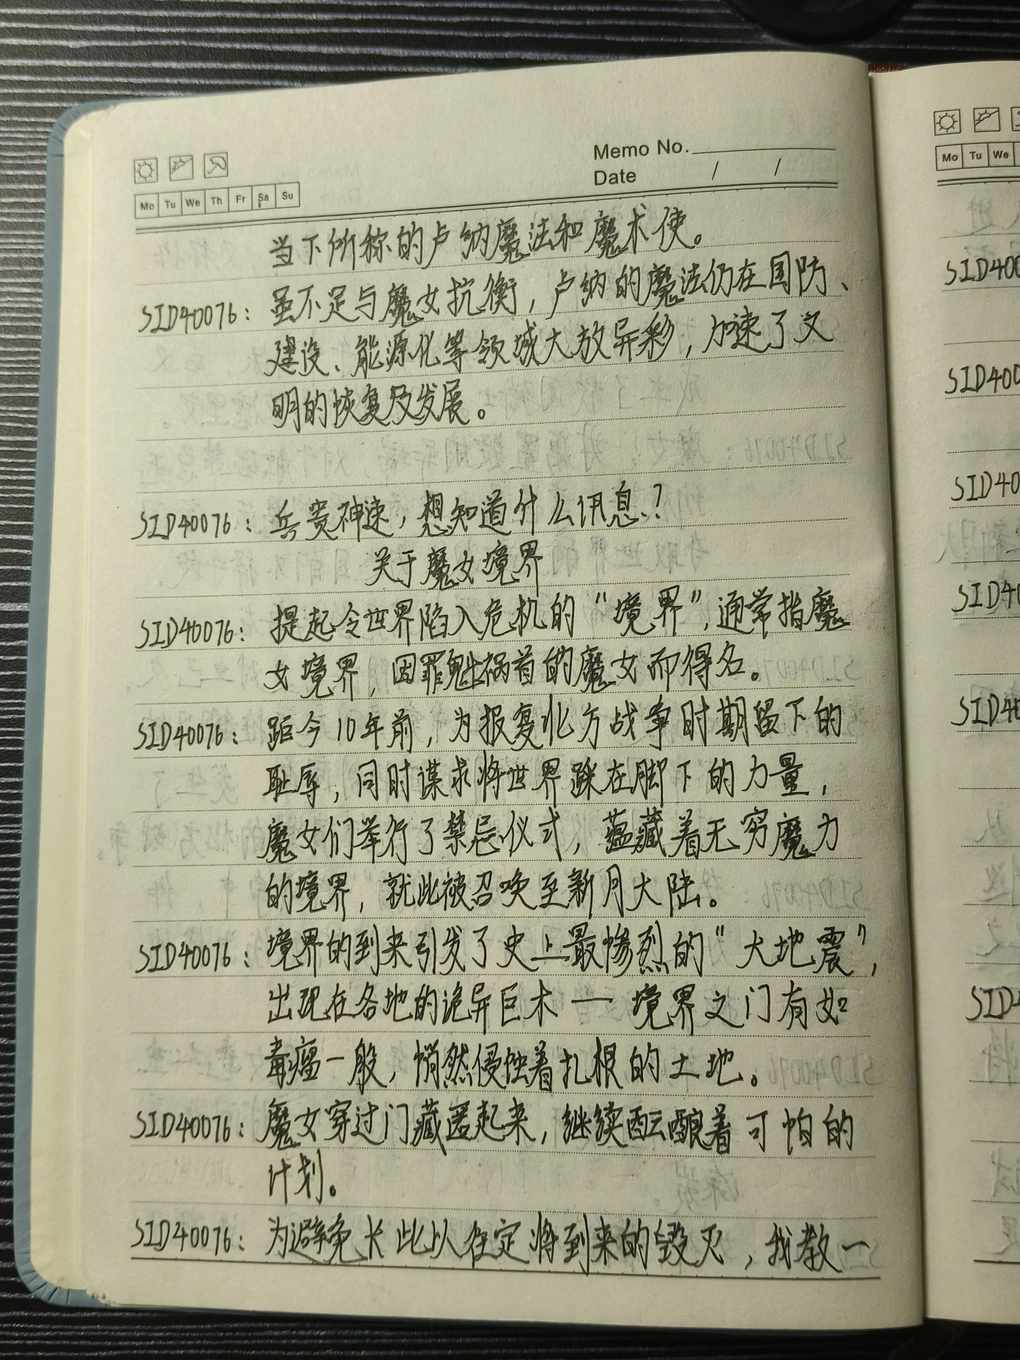 Memo No.
Date / /
Mo Tu We Th Fr Sa Su
当下所称的卢纳魔法和魔术使。
SID40076：虽不足与魔女抗衡，卢纳的魔法仍在国防、
建设、能源化等领域大放异彩，加速了文
明的恢复及发展。
SID40076：兵贵神速，想知道什么讯息？
关于魔女境界
SID40076：提起令世界陷入危机的“境界”，通常指魔
女境界，因罪魁祸首的魔女而得名。
SID40076：距今10年前，为报复北方战争时期留下的
耻辱，同时谋求将世界踩在脚下的力量，
魔女们举行了禁忌仪式，蕴藏着无穷魔力
的境界，就此被召唤至新月大陆。
SID40076：境界的到来引发了史上最惨烈的“大地震”，
出现在各地的诡异巨木——境界之门有如
毒瘤一般，悄然侵蚀着扎根的土地。
SID40076：魔女穿过门藏匿起来，继续酝酿着可怕的
计划。
SID40076：为避免长此以往定将到来的毁灭，我教一
Mo Tu We
SID400
SID400
SID40
SID40
SID40
SID4